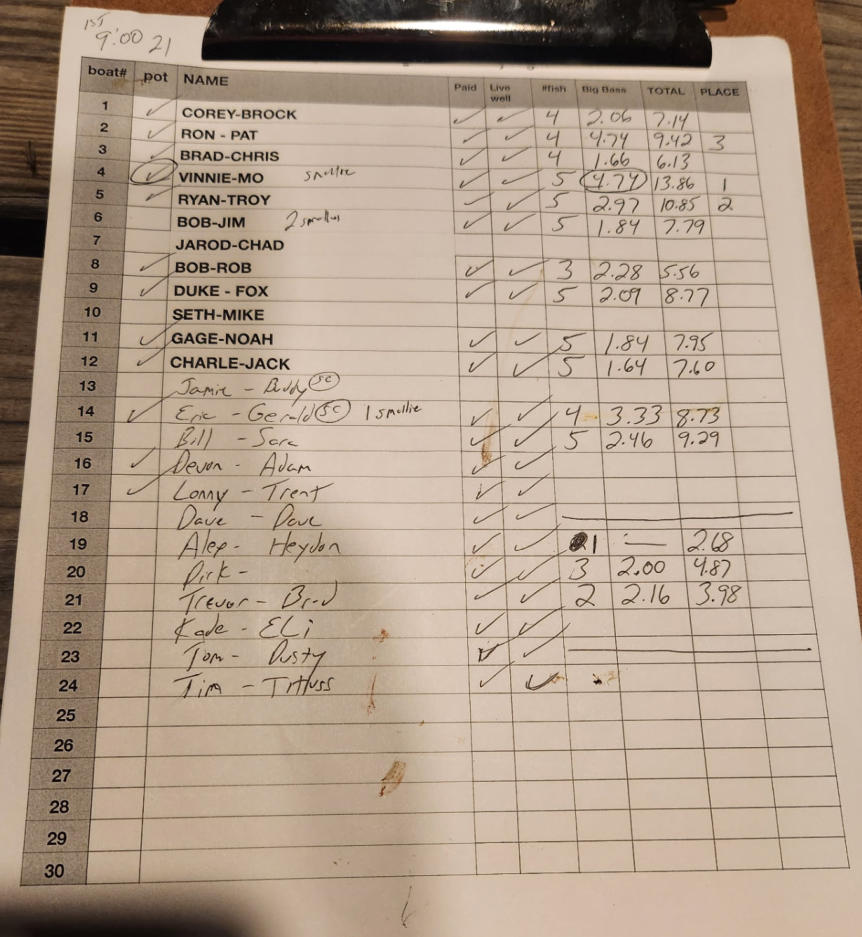 1ST
9:00 21
boat# pot NAME Paid Live well #fish Big Bass TOTAL PLACE
1 ✓ COREY-BROCK ✓ ✓ 4 2.06 7.14
2 ✓ RON - PAT ✓ ✓ 4 4.74 9.42 3
3 ✓ BRAD-CHRIS ✓ ✓ 4 1.66 6.13
4 ✓ VINNIE-MO smallie ✓ ✓ 5 4.77 13.86 1
5 ✓ RYAN-TROY ✓ ✓ 5 2.97 10.85 2
6 BOB-JIM 2 smallies ✓ ✓ 5 1.84 7.79
7 JAROD-CHAD
8 ✓ BOB-ROB ✓ ✓ 3 2.28 5.56
9 ✓ DUKE - FOX ✓ ✓ 5 2.09 8.77
10 SETH-MIKE
11 ✓ GAGE-NOAH ✓ ✓ 5 1.84 7.95
12 ✓ CHARLE-JACK ✓ ✓ 5 1.64 7.60
13 Jamie - Buddy SC
14 ✓ Eric - Gerald SC 1 smallie ✓ ✓ 4 3.33 8.73
15 Bill - Sara ✓ ✓ 5 2.46 9.29
16 ✓ Devon - Adam ✓ ✓
17 ✓ Lonny - Trent ✓ ✓
18 Dave - Dave ✓ ✓
19 Alex - Heydon ✓ ✓ 1 — 2.68
20 Dirk - ✓ ✓ 3 2.00 4.87
21 Trevor - Brad ✓ ✓ 2 2.16 3.98
22 Kade - ELi ✓ ✓
23 Tom - Dusty ✓ ✓
24 Tim - ✓ ✓
25
26
27
28
29
30